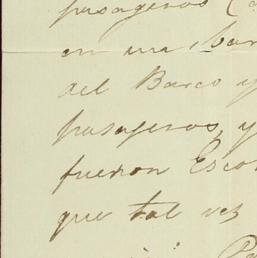 pasageros
en una bar
del Barco y
pasageros, y
fueron Esco
que tal vez